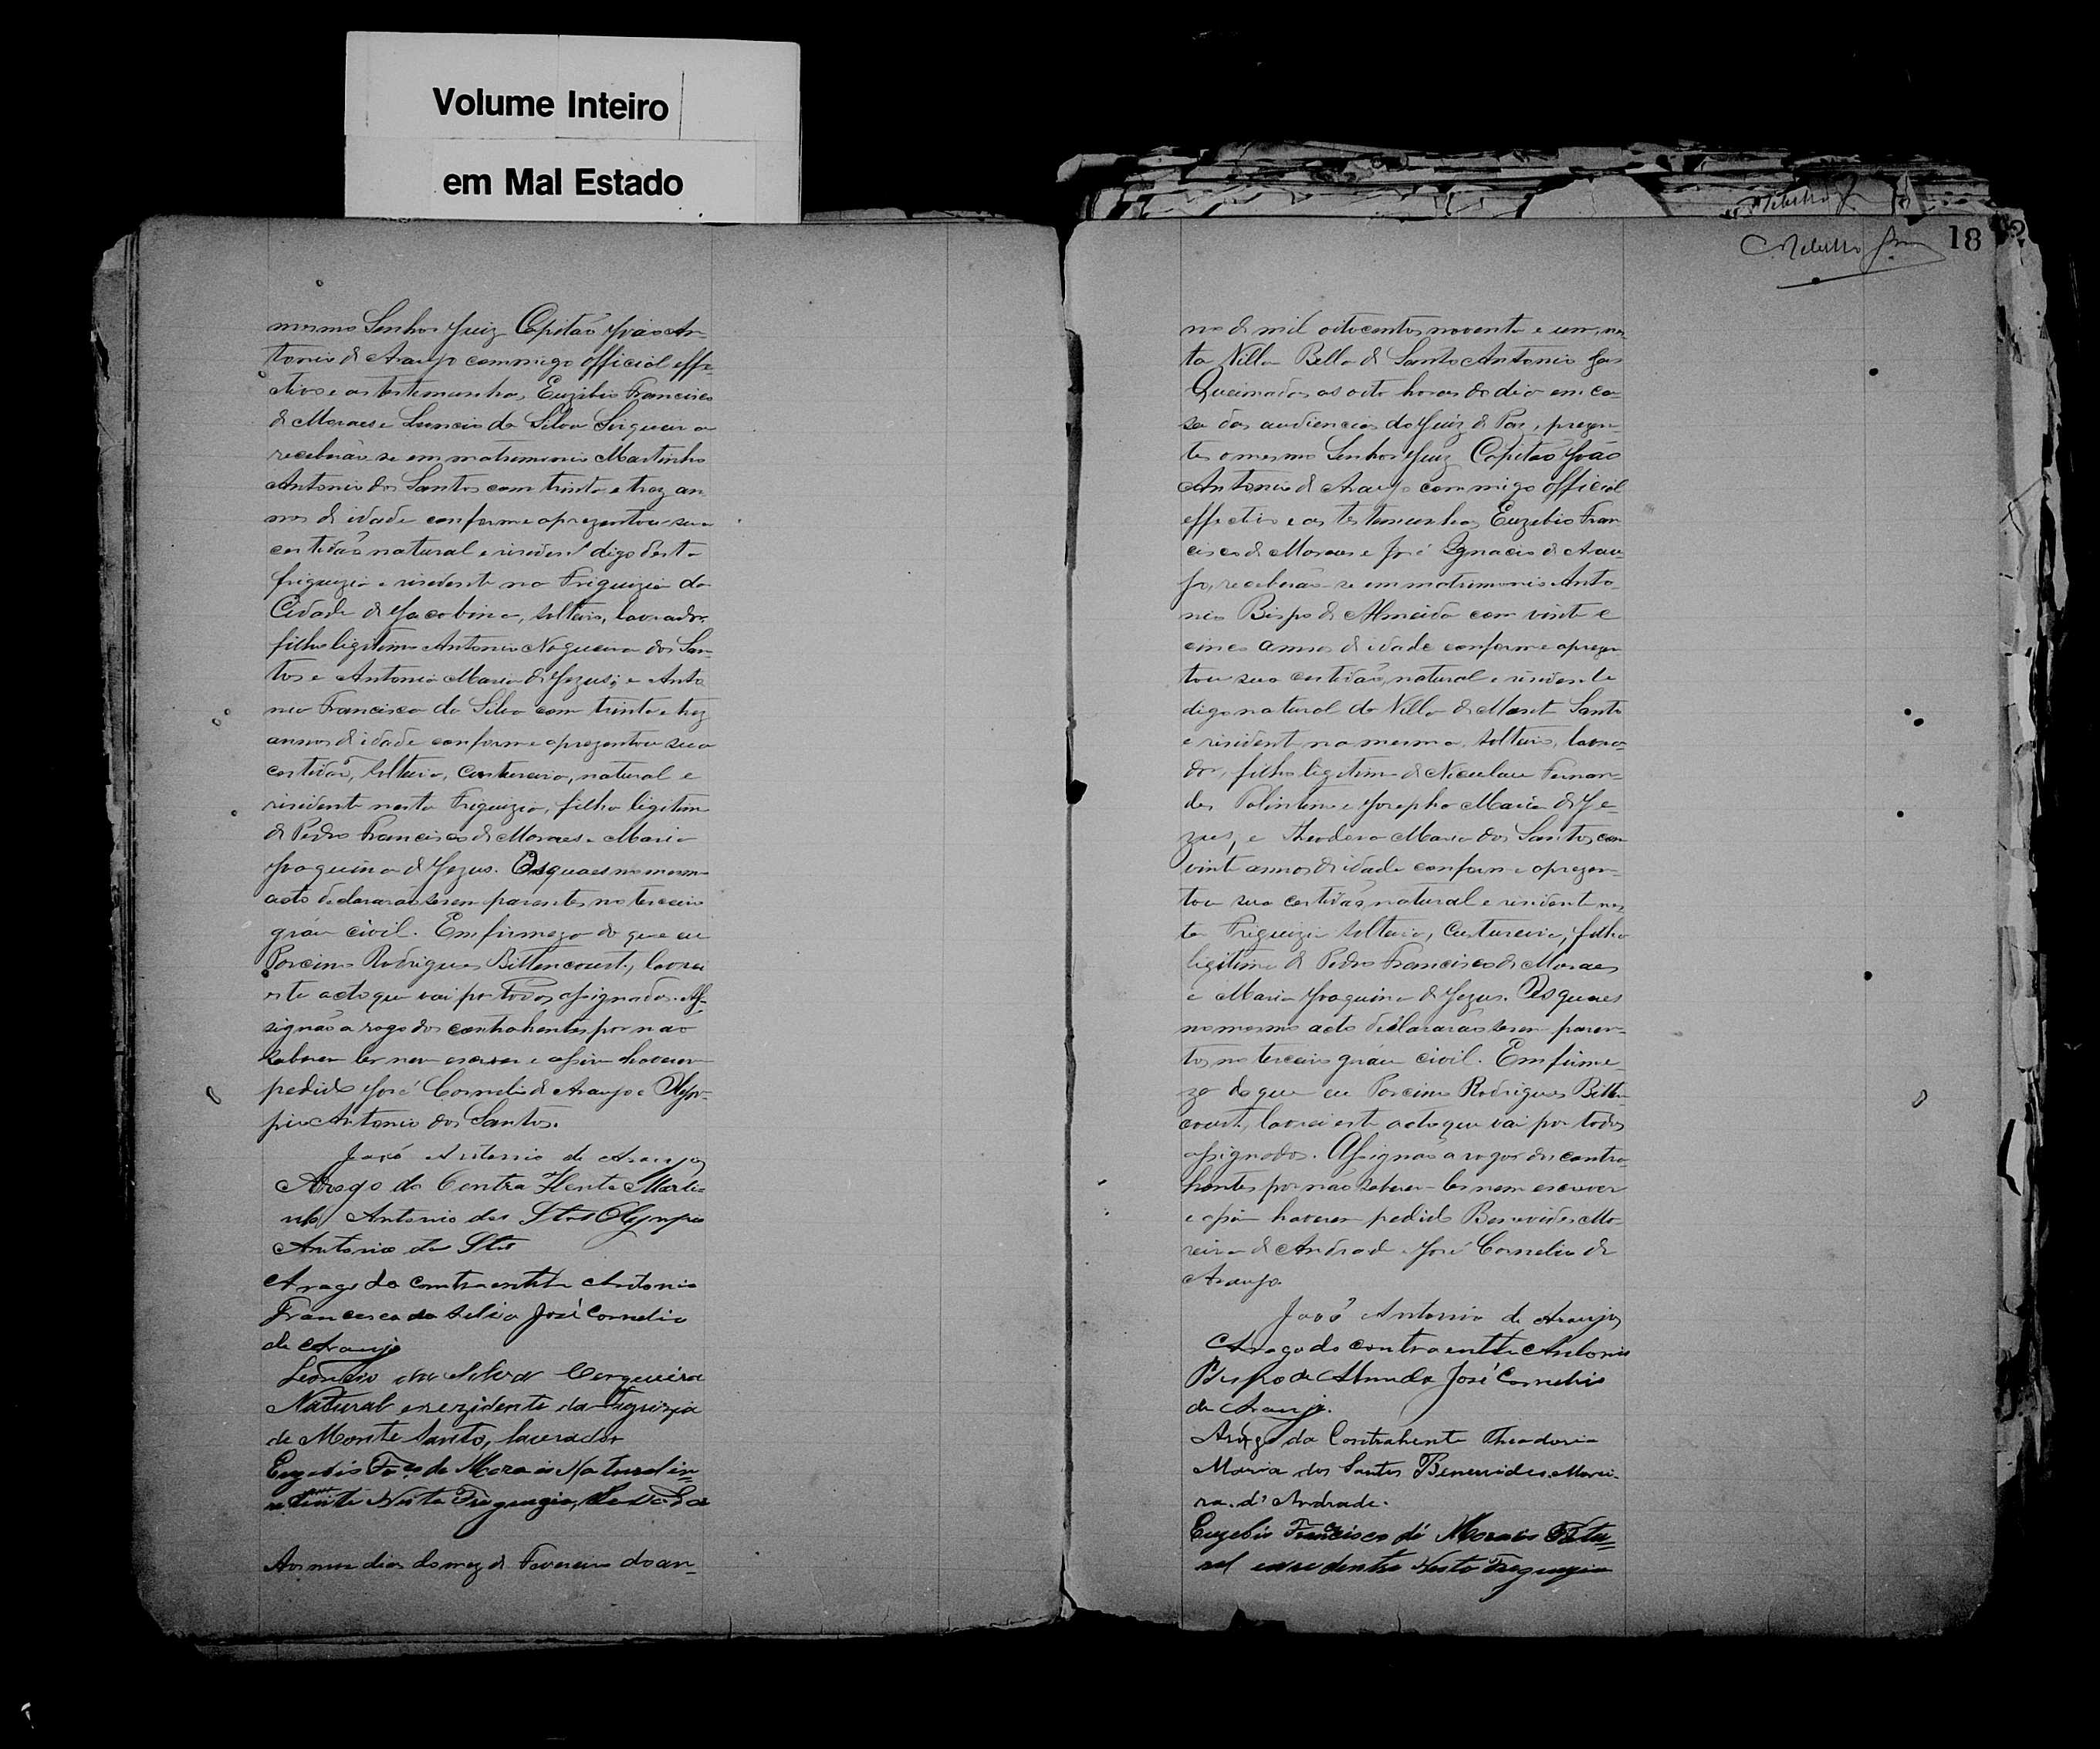 Volume Inteiro
em Mal Estado
mesmo Senhor Juiz Capitão João An-
tonio de Araujo commigo official effe-
ctivo e as testemunhas, Euzebio Francisco
de Moraes e Leuncio da Silva Serqueira
receberão se em matrimonio Martinho
Antonio dos Santos com trinta e trez an
nos de idade conforme aprezentou sua
certidão natural e risident digo desta
freguezia e risidente na Freguizia da
Cidade de Jacobina, solteiro, lavrador,
filho ligitimo Antonio Nogueira dos San-
tos e Antonia Maria de Jezus; e Anto
nia Francisca da Silva com trinta e trez
annos de idade conforme aprezentou sua
certidão, solteira, custureira, natural e
risidente nesta Freguizia, filha ligitima
de Pedro Francisco de Moraes e Maria
Joaquina de Jezus. Os quaes no mesmo
acto declararão serem parentes no terceiro
gráu civil. Em firmeza do que eu
Porcino Rodrigues Bittencourt, lavrei
este acto que vai por todos assignados. As-
signão a rogo dos contrahentes por não
saberem ler nem escrever e assim haverem
pedido José Cornelio de Araujo e Olym-
pio Antonio dos Santos.
João Antonio de Araujo
Arogo do Contra Hente Marti-
nho Antonio dos Stos Olympio
Antonio dos Stos
Arogo da contraentte Antonia
Francisca da Silva José Cornelio
de Araujo
Leoncio da Silva Cerqueira
Natural e rezidente da freguizia
de Monte Santo, laverador
Euzebio Fco de Morais Natural
Nesta Freguezia
Aos nove dias do mez de Fevereiro do an-
18
no de mil oitocentos noventa e um, nes
ta Villa Bella de Santo Antonio das
Queimadas as oito horas do dia em ca-
sa das audiencias do Juiz de Paz, prezen-
tes o mesmo Senhor Juiz Capitão João
Antonio de Araujo commigo official
effectivo e as testemunhas Euzebio Fran
cisco de Moraes e José Ignacio de Arau-
jo, receberão-se em matrimonio Anto
nio Bispo de Almeida com vinte e
cinco annos de idade conforme aprezen
tou sua certidão, natural e risidente
digo natural da Villa de Monte Santo
e risidente na mesma, solteiro, lavra-
dor, filho ligitimo de Niculau Fernan-
des e Josepha Maria de Je-
zus, e Theodora Maria dos Santos com
vinte annos de idade conforme aprezen-
tou sua certidão, natural e risidente nes
ta Friguizia solteira, custureira, filha
ligitima de Pedro Francisco de Moraes
e Maria Joaquina de Jezus. Os quaes
no mesmo acto declararão serem paren-
tes no terceiro gráu civil. Em firme-
za do que eu Porcino Rodrigues Bitten
court, lavrei este acto que vai por todos
assignados. Assignão a rogos dos contra-
hentes por não saberem ler nem escrever
e assim haverem pedido Benevides Mo-
reira de Andrade e José Cornelio de
Araujo.
João Antonio de Araujo
Arogo do contraentte Antonio
Bispo de Almeida José Cornelio
de Araujo.
Arôgo da Contrahente Theodoria
Maria dos Santos Benevides Morei-
ra. d'Andrade.
Euzebio Francisco de Morais Natu-
ral e residente Nesta Freguezia